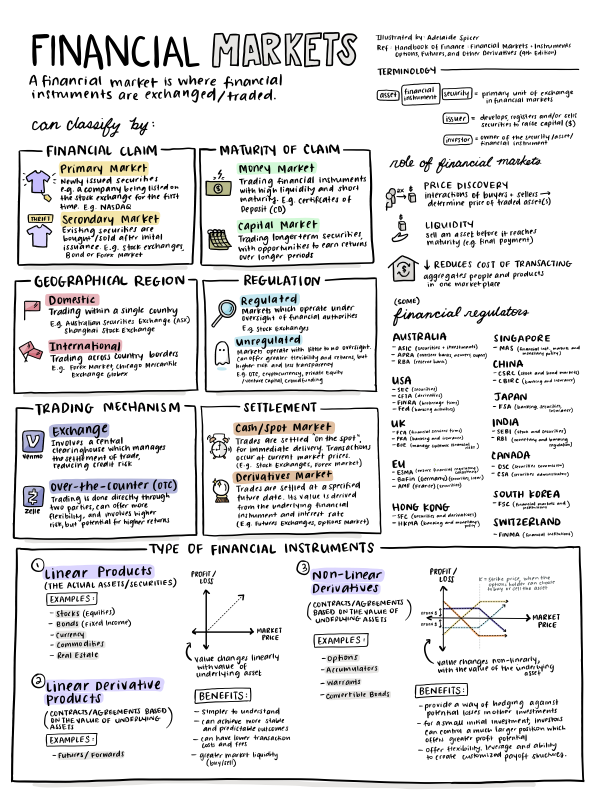 FINANCIAL MARKETS
A financial market is where financial
instruments are exchanged/traded.
Illustrated by: Adelaide Spicer
Ref: Handbook of Finance: Financial Markets + Instruments
Options, Futures, and Other Derivatives (9th Edition)
TERMINOLOGY
asset financial instrument security = primary unit of exchange
in financial markets
issuer = develops, registers and/or sells
securities to raise capital ($)
investor = owner of the security/asset/
financial instrument
can classify by:
FINANCIAL CLAIM
Primary Market
Newly issued securities
e.g. a company being listed on
the stock exchange for the first
time. E.g. NASDAQ
THRIFT
Secondary Market
Existing securities are
bought/sold after initial
issuance. E.g. Stock exchanges,
Bond or Forex Market
MATURITY OF CLAIM
Money Market
Trading financial instruments
with high liquidity and short
maturity. E.g. certificates of
Deposit (CD)
Capital Market
Trading longer term securities,
with opportunities to earn returns
over longer periods
role of financial markets
PRICE DISCOVERY
interactions of buyers + sellers →
determine price of traded asset(s)
LIQUIDITY
sell an asset before it reaches
maturity (e.g. final payment)
↓ REDUCES COST OF TRANSACTING
aggregates people and products
in one marketplace
GEOGRAPHICAL REGION
Domestic
Trading within a single country
E.g. Australian Securities Exchange (ASX)
Shanghai Stock Exchange
International
Trading across country borders
E.g. Forex Market, Chicago Mercantile
Exchange Globex
REGULATION
Regulated
Markets which operate under
oversight of financial authorities
E.g. Stock Exchanges
Unregulated
Markets operate with little to no oversight.
Can offer greater flexibility and returns, but
higher risk and less transparency
E.g. OTC, cryptocurrency, private equity
/venture capital, crowdfunding
(SOME)
financial regulators
AUSTRALIA
- ASIC (securities + investments)
- APRA
- RBA (reserve bank)
USA
- SEC (securities)
- CFTA (derivatives)
- FINRA (brokerage firms)
- Fed (banking activities)
UK
- FCA
- PRA (banking and insurance)
- BoE
EU
- ESMA
- BaFin (Germany)
- AMF (France)
HONG KONG
- SFC (securities and derivatives)
- HKMA (banking and monetary
policy)
SINGAPORE
- MAS
CHINA
- CSRC (stock and bond markets)
- CBIRC (banking and insurance)
JAPAN
- FSA (banking, securities,
insurance)
INDIA
- SEBI (stock and securities)
- RBI (monetary and banking
regulation)
CANADA
- OSC
- CSA
SOUTH KOREA
- FSC
SWITZERLAND
- FINMA (financial institutions)
TRADING MECHANISM
V
venmo
Exchange
Involves a central
clearinghouse which manages
the settlement of trade,
reducing credit risk
zelle
over-the-counter (OTC)
Trading is done directly through
two parties, can offer more
flexibility, and involves higher
risk, but potential for higher returns
SETTLEMENT
Cash/spot Market
Trades are settled "on the spot",
for immediate delivery. Transactions
occur at current market prices.
(E.g. Stock Exchanges, Forex market)
Derivatives Market
Trades are settled at a specified
future date. Its value is derived
from the underlying financial
instrument and interest rate
(E.g. Futures Exchanges, Options Market)
TYPE OF FINANCIAL INSTRUMENTS
1 Linear Products
(THE ACTUAL ASSETS/SECURITIES)
EXAMPLES:
- Stocks (Equities)
- Bonds (Fixed Income)
- Currency
- Commodities
- Real Estate
2 Linear Derivative
Products
(CONTRACTS/AGREEMENTS BASED
ON THE VALUE OF UNDERLYING
ASSETS)
EXAMPLES:
- Futures/Forwards
PROFIT/
LOSS
MARKET
PRICE
value changes linearly
with value of
underlying asset
BENEFITS:
- Simpler to understand
- can achieve more stable
and predictable outcomes
- can have lower transaction
costs and fees
- greater market liquidity
(buy/sell)
3 Non-Linear
Derivatives
(CONTRACTS/AGREEMENTS
BASED ON THE VALUE OF
UNDERLYING ASSETS)
EXAMPLES:
- Options
- Accumulators
- Warrants
- Convertible Bonds
PROFIT/
LOSS
K = strike price, when the
options holder can choose
to buy or sell the asset
MARKET
PRICE
value changes non-linearly,
with the value of the underlying
asset
BENEFITS:
- provide a way of hedging against
potential losses in other investments
- for a small initial investment, investors
can control a much larger position which
offers greater profit potential
- offer flexibility, leverage and ability
to create customized payoff structures.